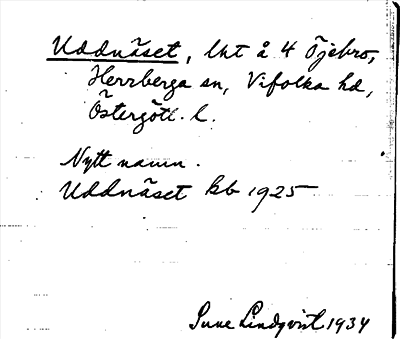 Uddnäset, lht å 4 Öjebro,
Herrberga sn, Vifolka hd,
Östergötl. l.
Nytt namn.
Uddnäset kb 1925
Sune Lindqvist 1934